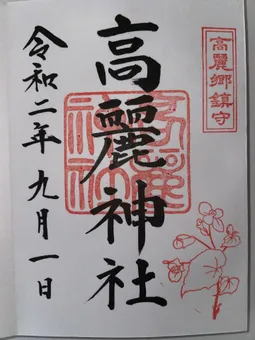 高麗郷鎮守
高麗神社
令和二年九月一日
高麗神社